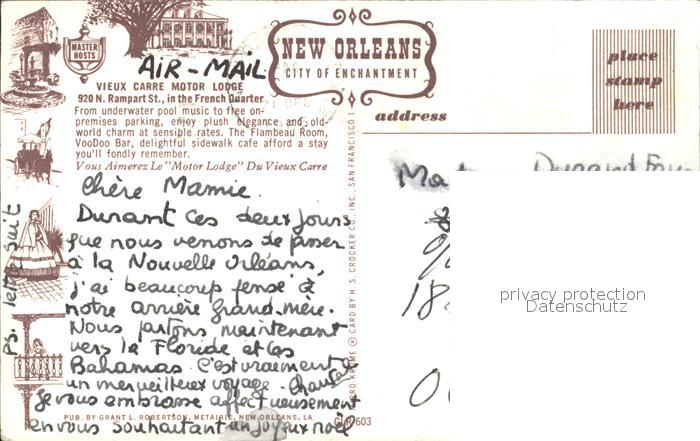 MASTER
HOSTS
AIR-MAIL
NEW ORLEANS
CITY OF ENCHANTMENT
place
stamp
here
VIEUX CARRE MOTOR LODGE
920 N. Rampart St., in the French Quarter
From underwater pool music to free on-
premises parking, enjoy plush elegance and old-
world charm at sensible rates. The Flambeau Room,
VooDoo Bar, delightful sidewalk cafe afford a stay
you'll fondly remember.
Vous Aimerez Le "Motor Lodge" Du Vieux Carre
address
Chère Mamie.
Durant ces deux jours
que nous venons de passer
à la Nouvelle Orléans,
j'ai beaucoup pensé à
notre arrière grand-mère.
Nous partons maintenant
vers la Floride et les
Bahamas. C'est vraiment
un merveilleux voyage. Chantal
je vous embrasse affectueusement
en vous souhaitant un joyeux noël
PS. lettre suit
PUB. BY GRANT L. ROBERTSON, METAIRIE, NEW ORLEANS, LA.
CARD BY H. S. CROCKER CO., INC., SAN FRANCISCO 1
Durand
18
privacy protection
Datenschutz